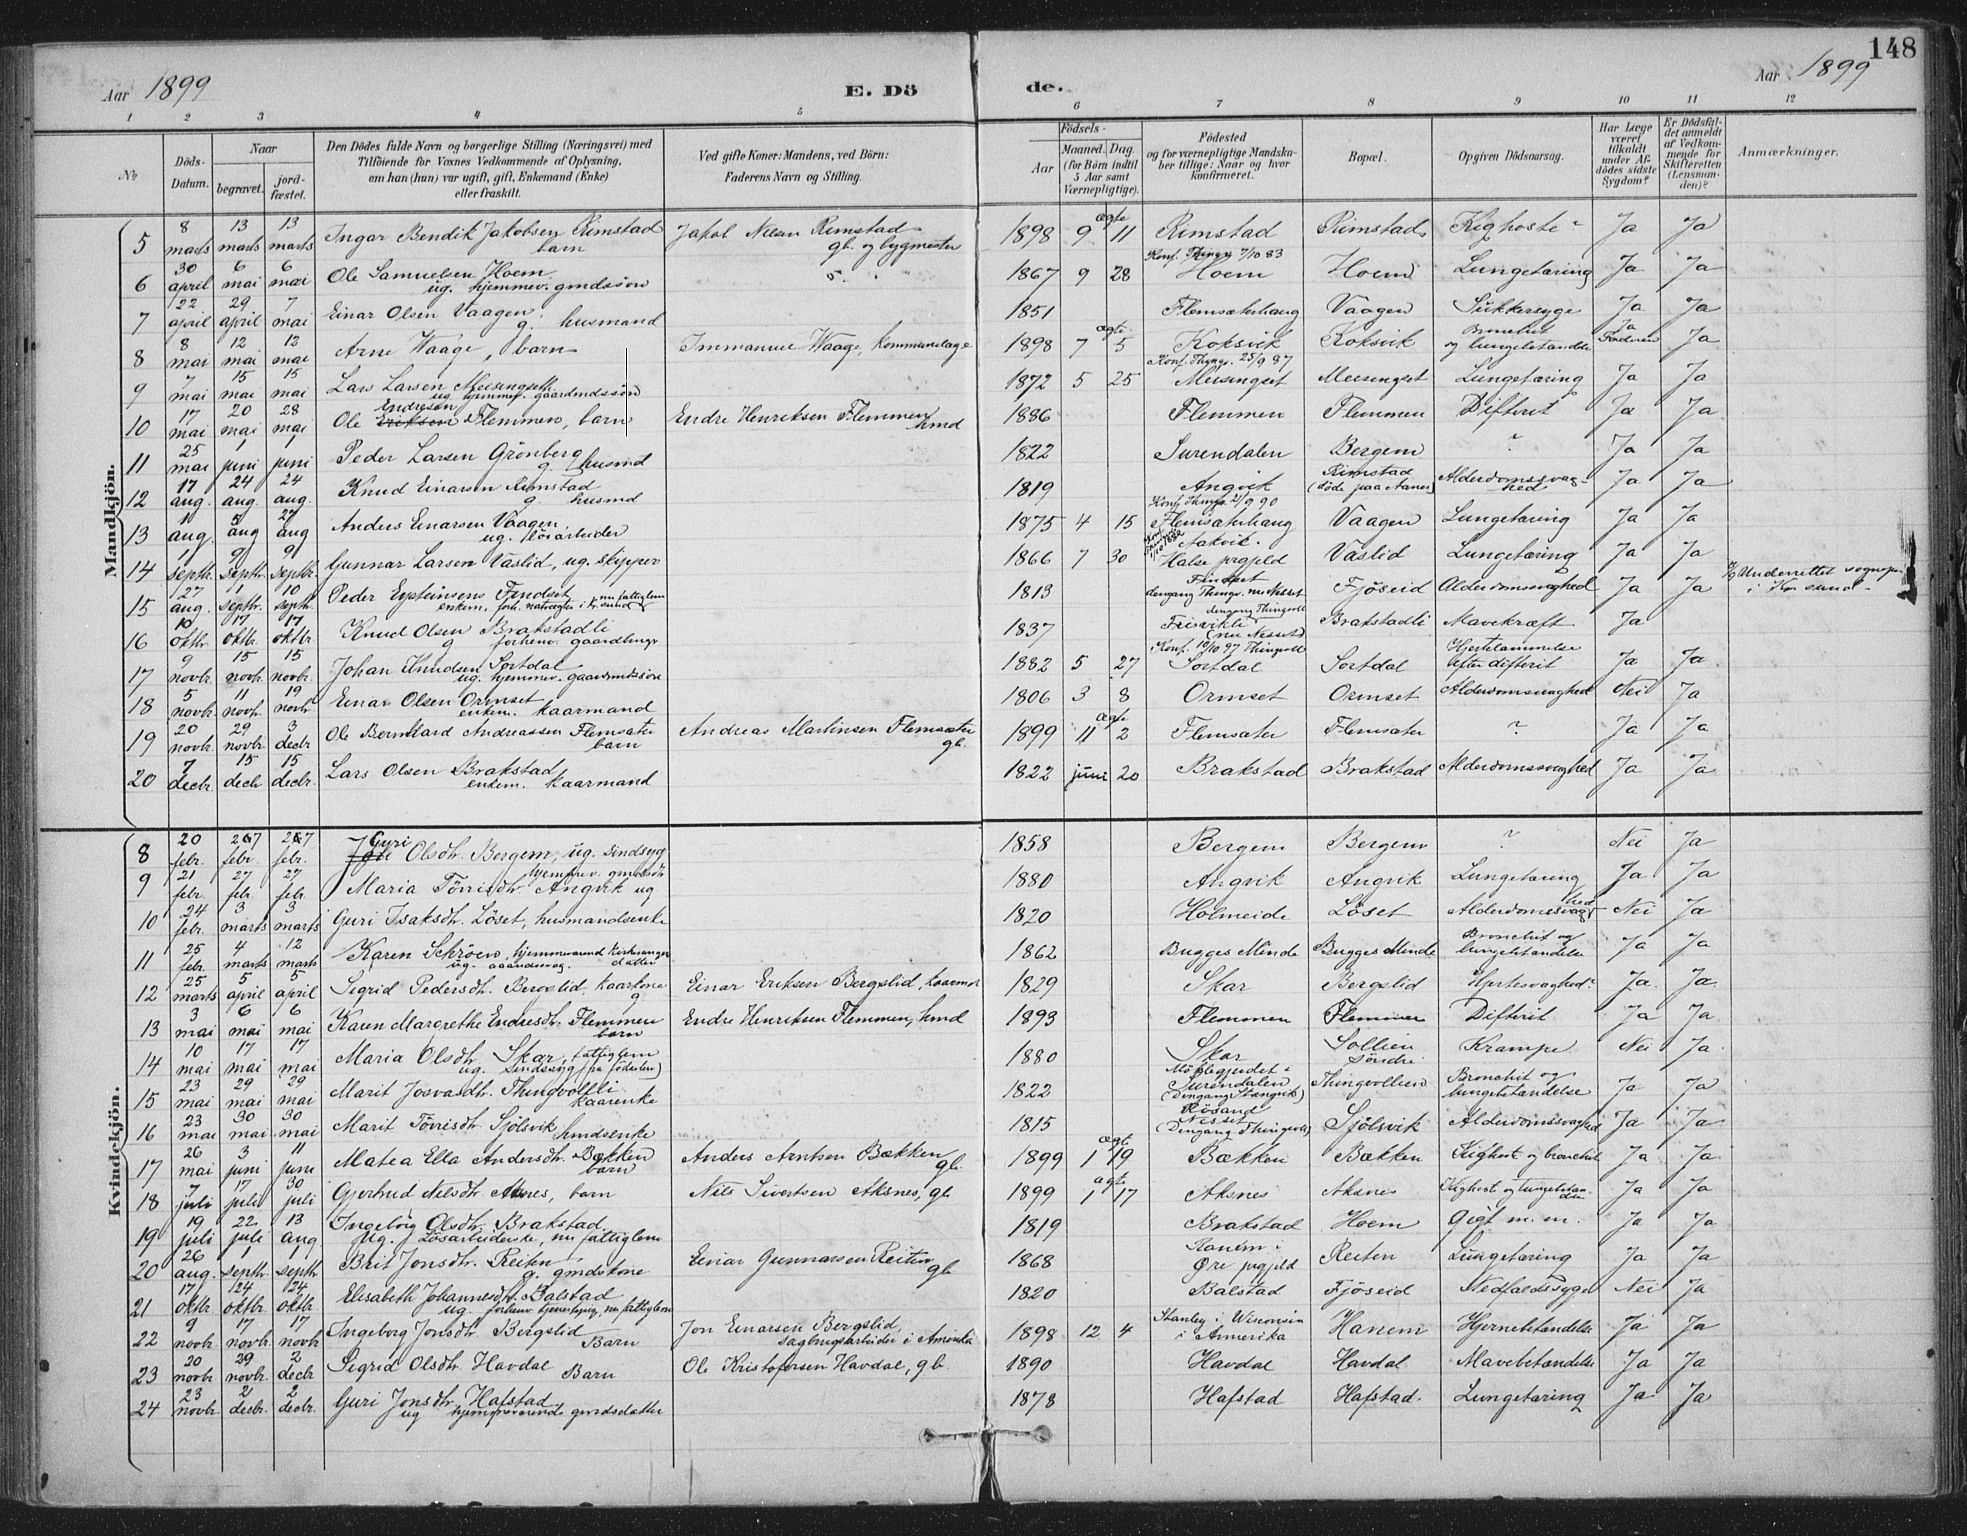 148
Aar 1899
E. Dö
de.
Aar 1899
1 2 3 4 5 6 7 8 9 10 11 12
No
Döds-Datum.
Naar
begravet.
jord-fæstet.
Den Dödes fulde Navn og borgerlige Stilling (Næringsvei) med
Tilföiende for Voxnes Vedkommende af Oplysning,
om han (hun) var ugift, gift, Enkemand (Enke)
eller fraskilt.
Ved gifte Koner: Mandens, ved Börn:
Faderens Navn og Stilling.
Födsels-
Aar
Maaned. Dag.
(for Börn indtil
5 Aar samt
Værnepligtige).
Födested
og for værnepligtige Mandska-
ber tillige: Naar og hvor
konfirmeret.
Bopæl.
Opgiven Dödsaarsag.
Har Læge
været
tilkaldt
under Af-
dödes sidste
Sygdom?
Er Dödsfal-
det anmeldt
af Vedkom-
mende for
Skifteretten
(Lensman-
den)?
Anmærkninger.
Mandkjön.
5 8 marts 13 marts 13 marts Ingar Bendik Jakobsen Rimstad barn Jakob Nilsen Rimstad gb. og bygmester 1898 9 ægte 11 Rimstad Rimstad Kighoste Ja Ja
6 30 april 6 mai 6 mai Ole Samuelsen Hoem ug. hjemmev. gmdssön 1867 9 28 Konf. Thingv 7/10 83 Hoem Hoem Lungetæring Ja Ja
7 22 april 29 april 7 mai Einar Olsen Vaagen g. husmand 1851 Flemsæterhaug Vaagen Sukkersyge Ja Ja
8 8 mai 12 mai 12 mai Arne Waage, barn Immanuel Waage, kommunelæge 1898 7 ægte 5 Koksvik Koksvik Bronchit og lungebetændelse Ja Faderen Ja
9 7 mai 15 mai 15 mai Lars Larsen Meisingseth ug. hjemmev. gaardmdssön 1872 5 25 Konf. Thingv. 25/9 87 Meisingset Meisingset Lungetæring Ja Ja
10 17 mai 20 mai 28 mai Ole Endresen Eriksen Flemmen, barn Endre Henriksen Flemmen hmd 1886 Flemmen Flemmen Difterit Ja Ja
11 25 mai 1 juni 1 juni Peder Larsen Grönberg g. husmd 1822 Surendalen Bergem ? Ja Ja
12 17 aug. 24 aug. 24 aug. Knud Einarsen Rimstad g. husmd 1819 Angvik Rimstad (döde paa Aanes) Alderdomssvaghed Ja Ja
13 1 aug. 5 aug 27 aug Anders Einarsen Vaagen ug. lösarbeider 1875 4 15 Konf. Thingv. 21/9 90 Flemsæterhaug Vaagen Lungetæring Ja Ja
14 1 septr. 9 septr. 9 septr. Gunnar Larsen Vaslid, ug. skipper 1866 7 30 Aakvik. Halse prgjeld Vaslid Lungetæring Ja Ja
15 27 aug. 11 septr. 10 septr. Peder Eysteinsens Fendset enkem. forh. natvægter i Kr.sund nu fattiglem 1813 Fendset dengang Thingv. nu Nesset Fjöseid Alderdomssvaghed Ja Ja Underrettet sognepr. i Kr.sund
16 10 oktbr. 17 oktbr. 17 oktbr. Knud Olsen Brakstadli g forhenv. gaardbruger 1837 dengang Thingvold Frisvikli (nu Nesset) Brakstadli Mavekræft Ja
17 9 novbr. 15 novbr. 15 novbr. Johan Knudsen Sortdal ug. hjemmev. gaardmdssön 1882 5 27 Konf. 10/10 97 Thingvold Sortdal Sortdal Hjertelammelse efter difterit Ja Ja
18 5 novbr. 11 novbr. 19 novbr Einar Olsen Ormset enkem. kaarmand 1806 3 8 Ormset Ormset Alderdomssvaghed Nei Ja
19 20 novbr. 29 novbr. 3 decbr Ole Bernhard Andreassen Flemsæter barn Andreas Martinsen Flemsæter gb. 1899 11 ægte 2 Flemsæter Flemsæter ? Ja Ja
20 7 decbr. 15 decbr 15 decbr. Lars Olsen Brakstad enkem. kaarmand 1822 juni 20 Brakstad Brakstad Alderdomssvaghed Ja Ja
Kvindekjön.
8 20 febr. 27 febr. 27 febr. Guri Olsdtr. Bergem, ug. sindssyg hjemmev. gmdsdtr 1858 Bergem Bergem ? Nei Ja
9 21 febr. 27 febr. 27 febr. Maria Törrisdtr Angvik ug 1880 Angvik Angvik Lungetæring Ja Ja
10 24 febr. 3 marts 3 marts Guri Isaksdtr. Löset, husmandsenke 1820 Holmeide Löset Alderdomssvaghed Nei Ja
11 25 febr. 4 marts 12 marts Karen Schröen, hjemmeværend kirkesanger datter ug. aandssvag. 1862 Bugges Minde Bugges Minde Bronchit og lungebetændelse Ja Ja
12 25 marts 5 april 5 april Sigrid Pedersdtr. Bergslid, kaarkone g Einar Eriksen Bergslid, kaarmd 1829 Skar Bergslid Hjertesvaghed Ja. Ja.
13 3 mai 6 mai 6 mai Karen Margrethe Endresdtr. Flemmen barn Endre Henriksen Flemmen, hmd 1893 Flemmen Flemmen Difterit Ja Ja
14 10 mai 17 mai 17 mai Maria Olsdtr. Skar, fattiglem ug. Sindssyg (fra födselen) 1880 Skar Sollien Söndre Krampe Nei Ja.
15 23 mai 29 mai 29 mai Marit Josvasdtr. Thingvollli kaarenke 1822 Surendalen (Dengang Stangvik) Thingvollien Bronchit og lungebetændelse Ja Ja
16 23 mai 30 mai 30 mai Marit Törrisdtr Sjölsvik hmdsenke 1815 Rösand Nesset (Dengang Thingvold) Sjölsvik Alderdomssvaghed Ja Ja
17 26 mai 3 juni 11 juni Matea Ella Andersdtr. Bækken barn Anders Arntsen Bækken gb. 1899 1 ægte 19 Bækken Bækken Kighost og bronchit Ja Ja.
18 7 juli 17 juli 30 juli Gjertrud Nilsdtr Aksnes, barn Nils Sivertsen Aksnes, gb 1899 1 ægte 17 Aksnes Aksnes Kighoste og lungebetændelse Ja Ja
19 19 juli 22 juli 13 aug Ingeborg Olsdtr. Brakstad. ug. Lösarbeiderske, nu fattiglem 1819 Brakstad Hoem Gigt m. m. Ja Ja
20 26 aug. 1 septr. 1 septr. Brit Jonsdtr. Reiten g. gmdskone Einar Gunnarsen Reiten gb 1868 Ranem i Öre prgjeld Reiten Lungetæring Ja Ja
21 17 oktbr. 24 oktbr. 24 oktbr. Elisabeth Johannesdtr. Balstad ug. forhenv. tjenestepige, nu fattiglem 1820 Balstad Fjöseid Nedfaldssyge Nei Ja
22 9 novbr. 17 novbr. 17 novbr Ingeborg Jonsdtr. Bergslid Barn Jon Einarsen Bergslid, sagbrugsarbeider i Amerika 1898 12 4 Stanley i Wisconsin i Amerika Hanem Hjernebetændelse Ja Ja
23 20 novbr 29 novbr. 2 decbr Sigrid Olsdtr. Havdal Barn Ole Kristofersen Havdal, gb. 1890 Havdal Havdal Mavebetændelse Ja Ja
24 23 novbr. 2 decbr. 2 decbr. Guri Jonsdtr. Hafstad ug hjemmeværende gmdsdatter 1878 Hafstad Hafstad. Lungetæring Ja Ja